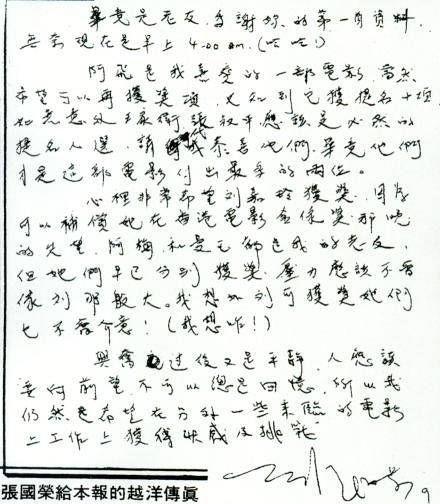 畢竟是老友，多謝妳的第一有資料，
無奈現在是早上 4:00 am.(哈哈!)
阿飛是我喜愛的一部電影，當然
希望可以再獲獎項，又知到已獲提名十項
如無意外張叔平應該是必然的
提名人選，請代我恭喜他們，畢竟他們
是這部電影付出最多的兩位。
心裡非常希望劉嘉玲獲獎，因為
可以補償她在香港電影金像獎那晚
的失望，阿梅和曼玉都是我的老友，
但她們早已分別獲獎，壓力應該不會
像那般大。我想如到可獲獎她們
也不會介意！(我想咋!)
興奮過後又是平靜，人應該
要向前望，不可以總是回憶，所以我
仍然是希望在另外一些來臨的電影
上工作上獲得快感及挑戰
張國榮給本報的越洋傳真